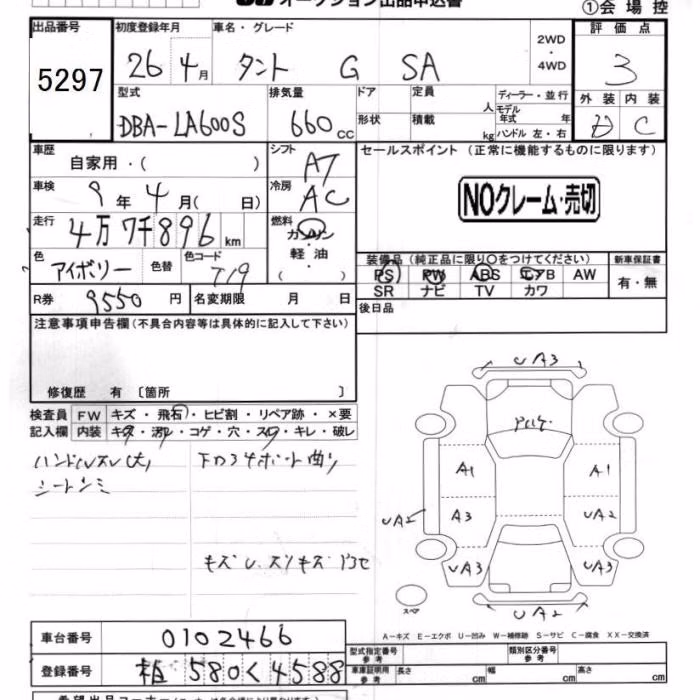 オークション出品申込書
①会場控
出品番号 初度登録年月 車名・グレード 2WD・4WD 評価点
5297 26 4月 タント G SA 3
型式 排気量 ドア 定員 人 ディーラー・並行 外装 内装
DBA-LA600S 660cc 形状 積載 kg モデル年式 年 ハンドル 左・右 D C
車歴 シフト セールスポイント(正常に機能するものに限ります)
自家用・( ) AT
車検 9年4月( 日) 冷房 AC
NOクレーム・売切
走行 4万7千896km 燃料 ガソリン
軽油
( )
色 アイボリー 色替 色コード T19
装備品(純正品に限り○をつけてください) 新車保証書
PS PW ABS エアB AW 有・無
SR ナビ TV カワ
R券 9550円 名変期限 月 日 後日品
注意事項申告欄(不具合内容等は具体的に記入して下さい)
修復歴 有〔箇所 〕
検査員 FW キズ・飛石・ヒビ割・リペア跡・×要
記入欄 内装 キズ・汚れ・コゲ・穴・スレ・キレ・破レ
ハンドルスレ(大)
シートシミ
キズU、スリキズ
UA3
A1 A1
A3 UA2
UA2
UA3 UA3
スペア UA2
A-キズ E-エクボ U-凹み W-補修跡 S-サビ C-腐食 XX-交換済
車台番号 0102466
型式指定番号 参考 類別区分番号 参考
登録番号 580く4588
車庫証明用 参考 長さ cm 幅 cm 高さ cm